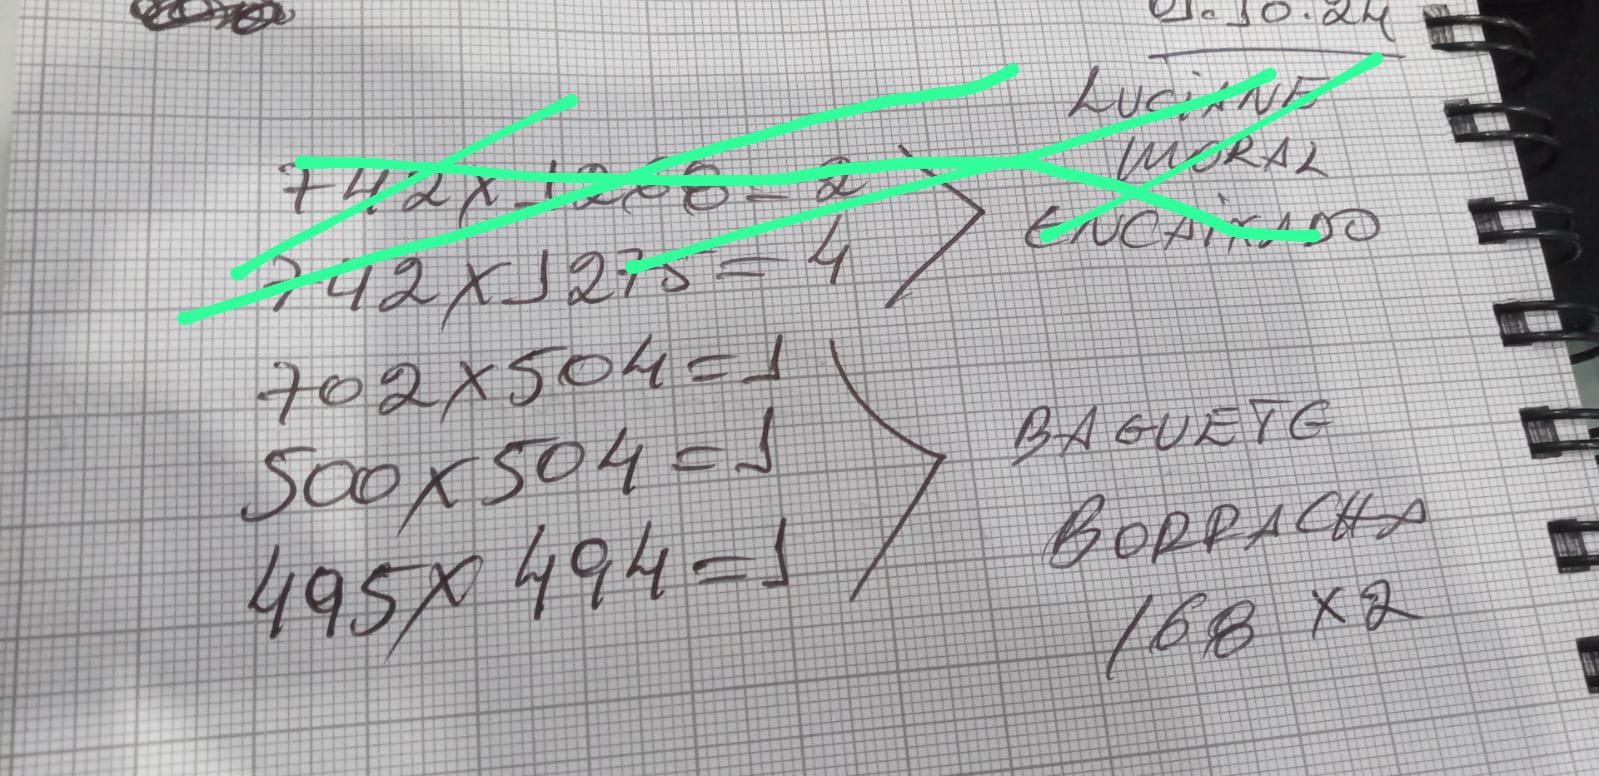 01.10.24
LUCIANE
MURAL
ENCAIXADO
742x1268=2
742x1275=4
702x504=1
500x504=1
495x494=1
BAGUETE
BORRACHA
168 x2